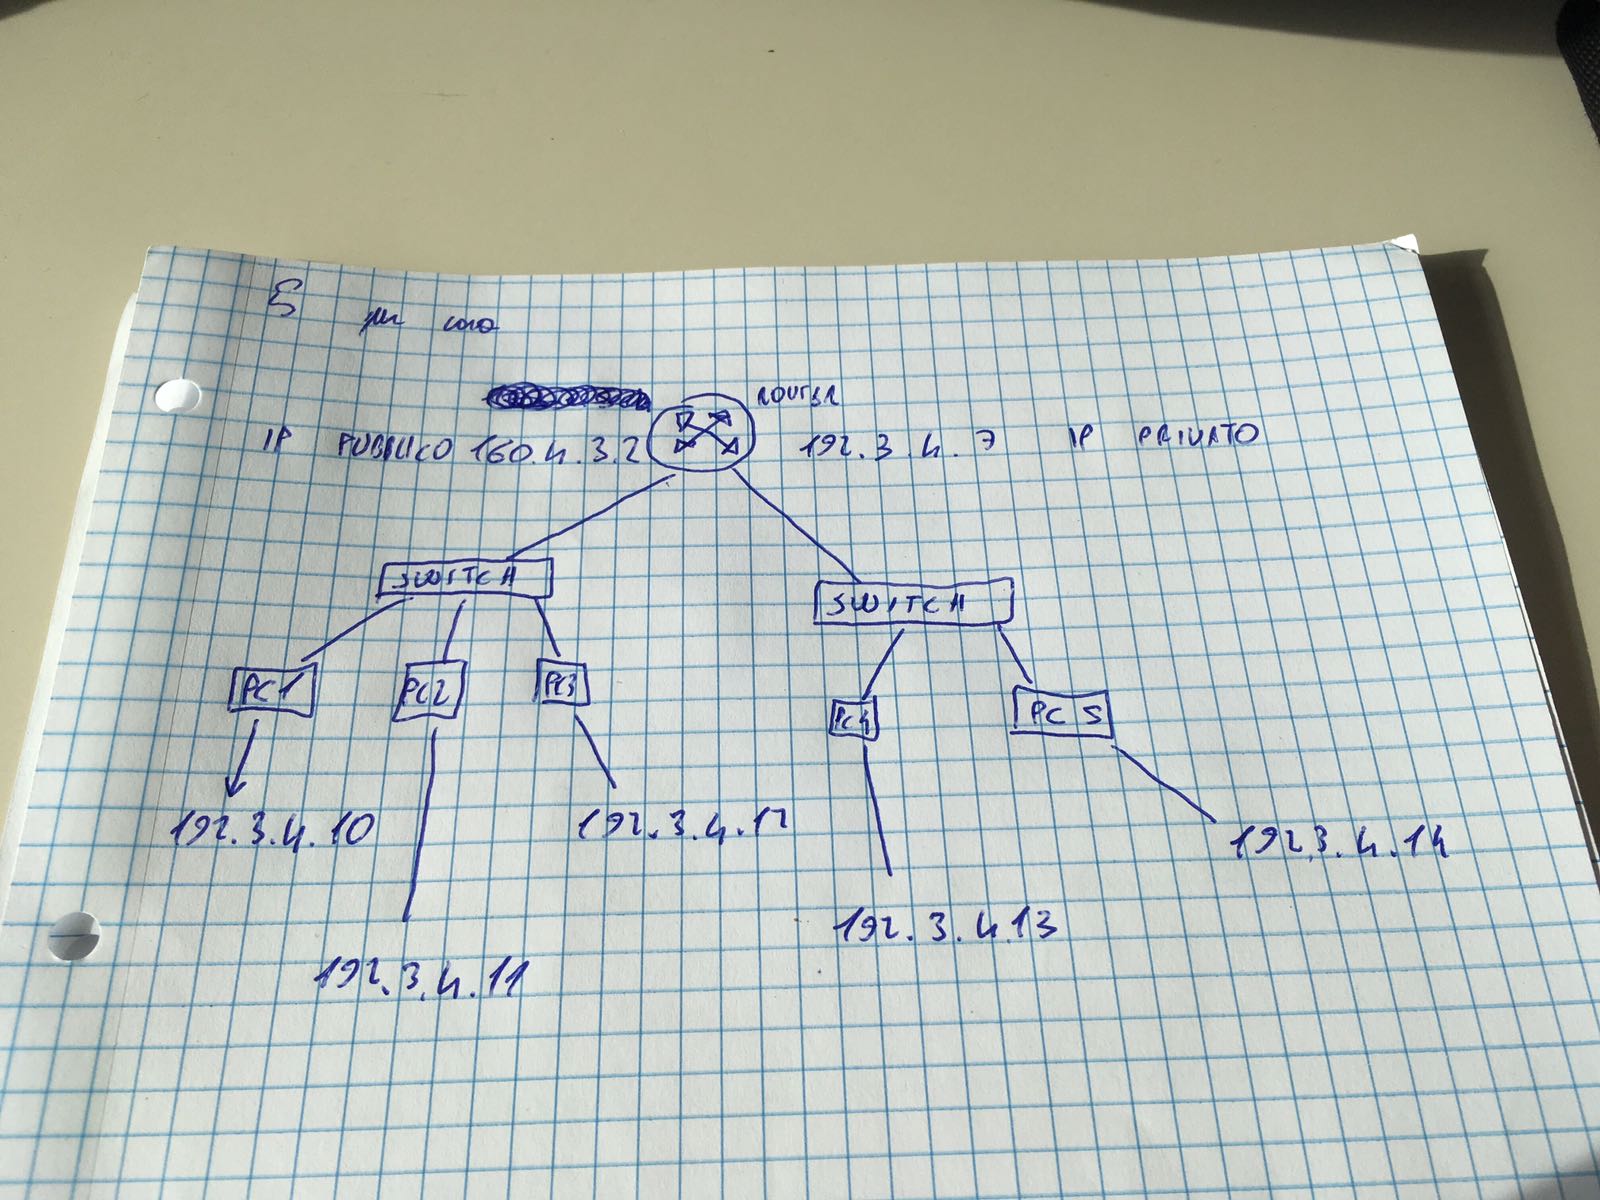 Es per casa
ROUTER
IP PUBBLICO 160.4.3.2 192.3.4.7 IP PRIVATO
SWITCH
SWITCH
PC1 PC2 PC3
PC4 PC5
192.3.4.10 192.3.4.12
192.3.4.14
192.3.4.13
192.3.4.11